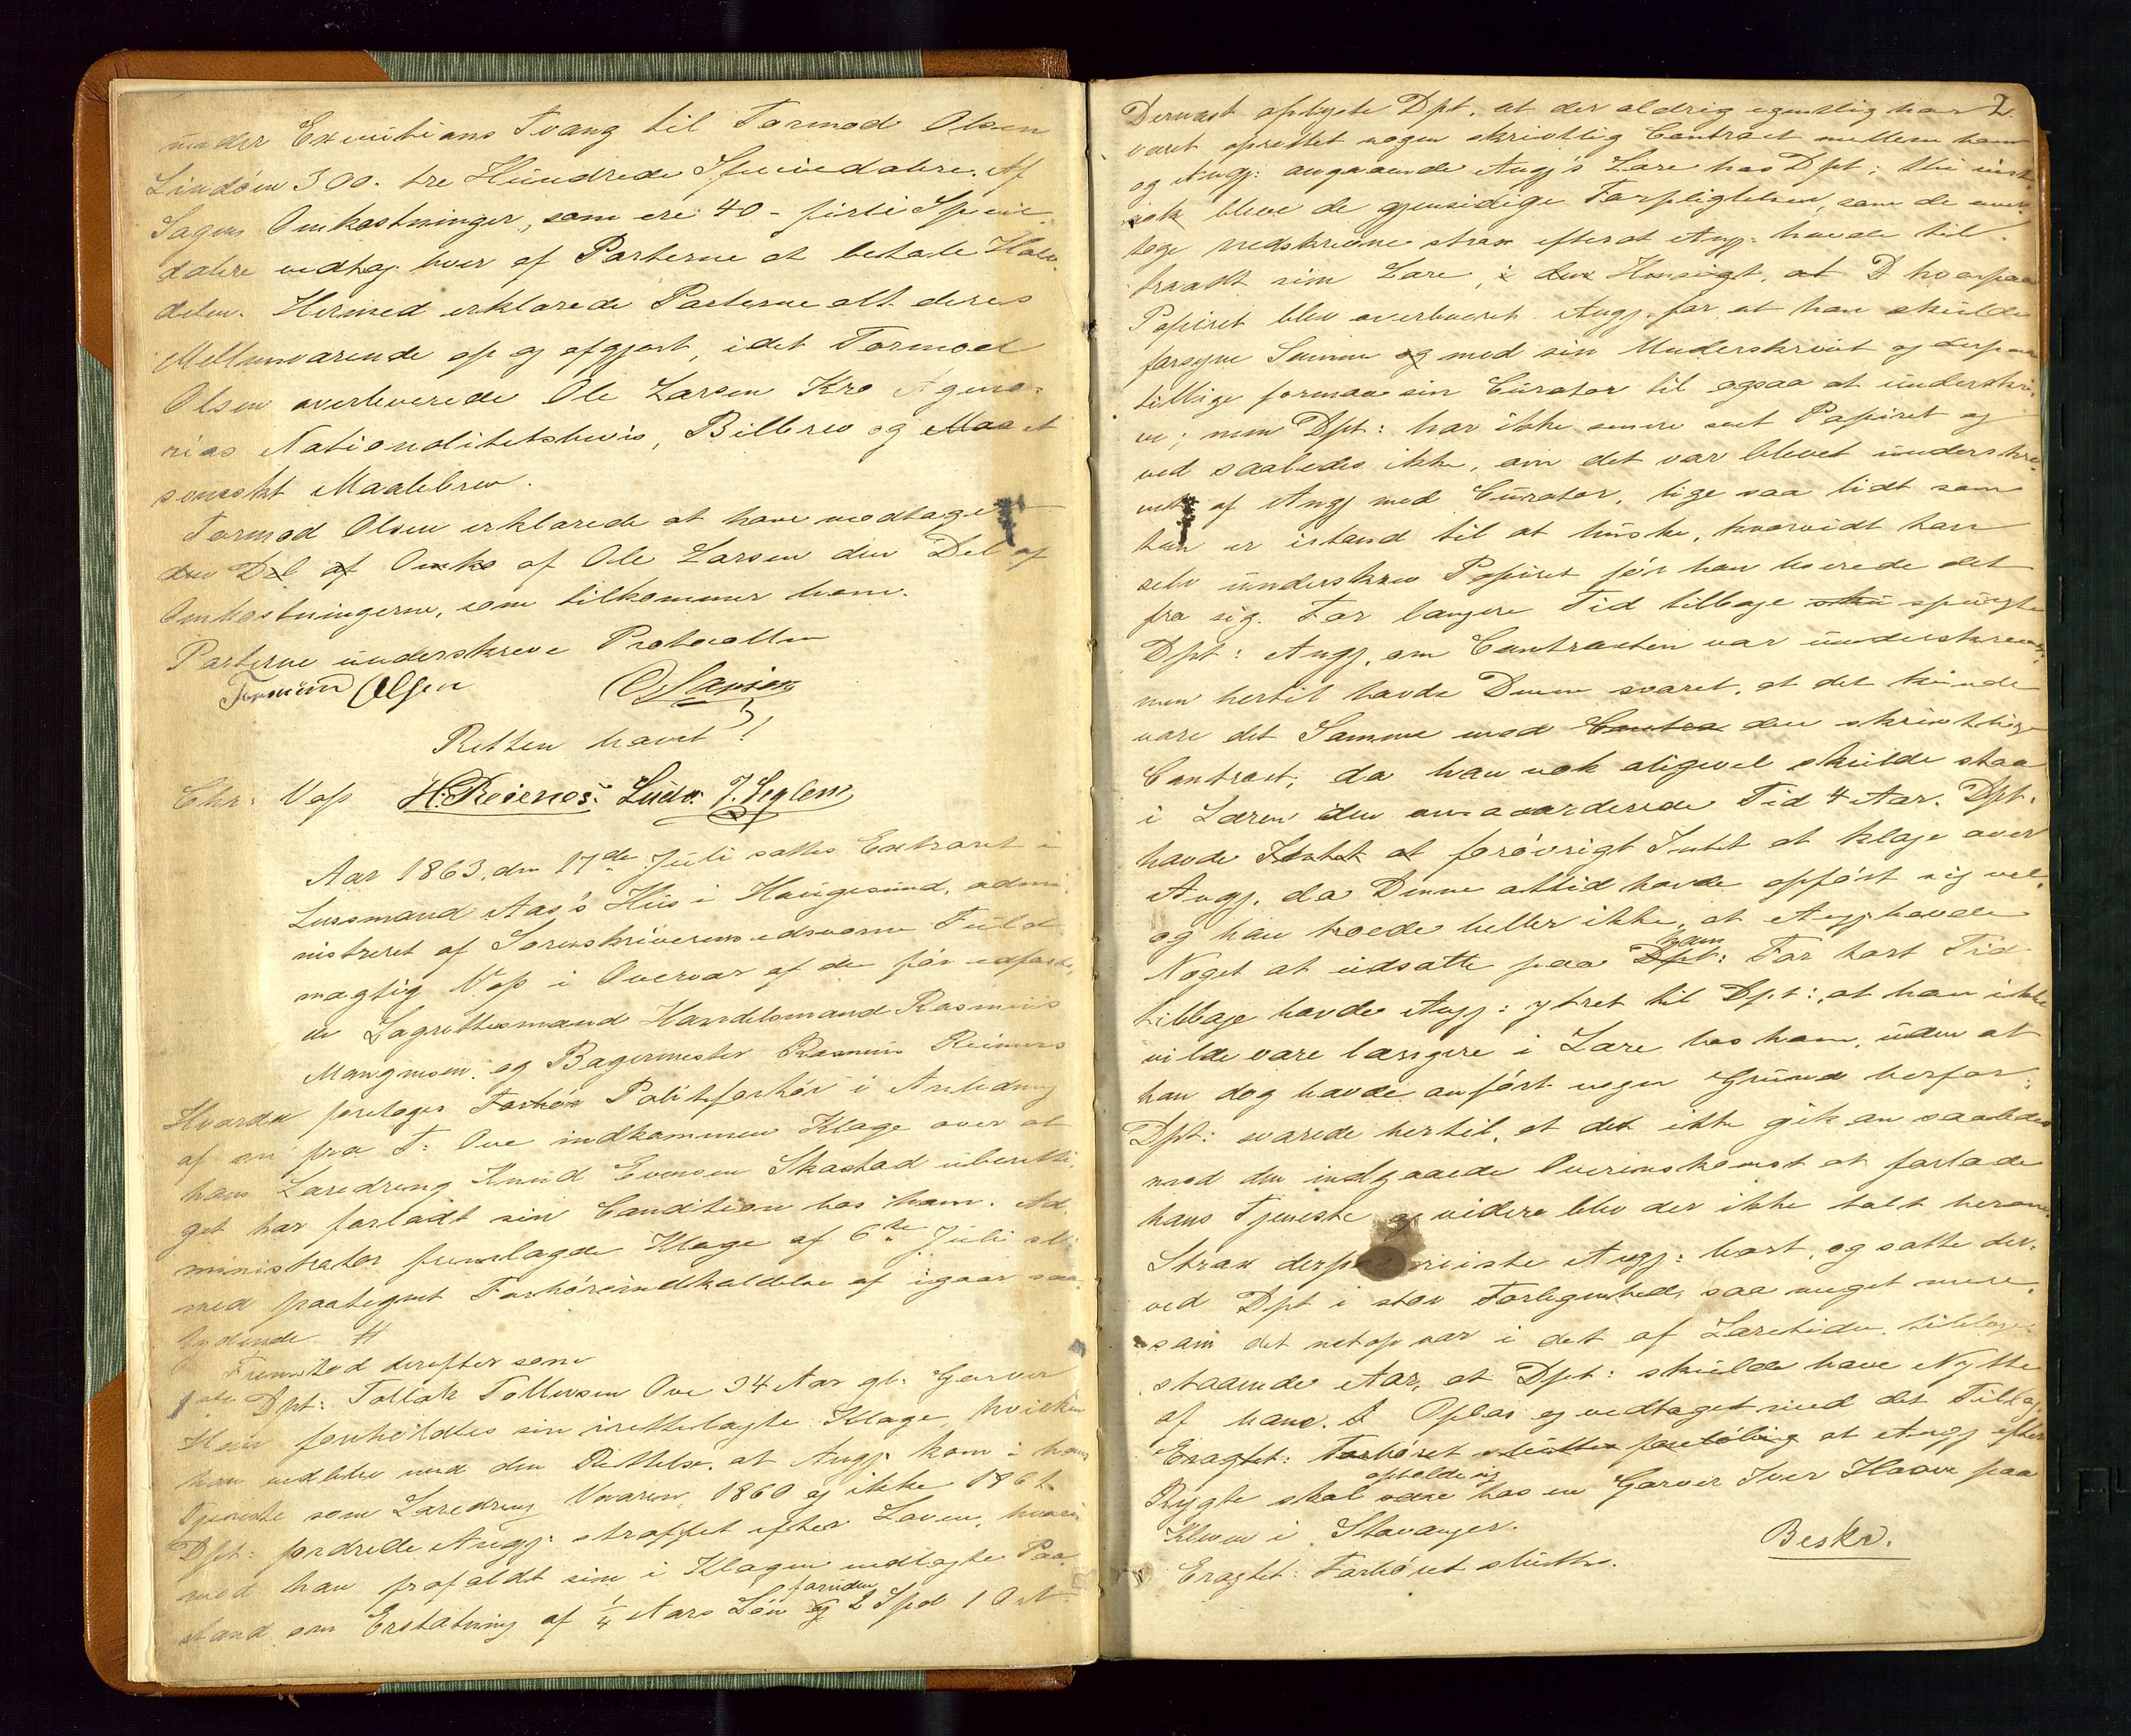 under Executions Tvang til Tormod Olsen
Lindøen 300. tre Hundrede Speciedalere. Af
Sagens Omkostninger, som ere 40 - firti Specie-
dalere vedtog hver af Parterne at betale Halv-
delen. Hermed erklærede Parterne alt deres
Mellemværende op og afgjort, idet Tormod
Olsen overleverede Ole Larsen Kro
Nationalitetsbevis, Bilbrev og
svenskt Maalebrev.
Tormod Olsen erklærede at have modtaget
den Del af Omks af Ole Larsen den Del af
Omkostningerne, som tilkommer ham.
Parterne underskreve Protocollen
Tormund Olsen O. Larsen
Retten hævet!
Chr: Vop H. Reienes: Ludv. J. Seglem
Aar 1863, den 17de Juli sattes Extraret i
Lensmand Aas's Hus i Haugesund, admi-
nistreret af Sorenskriverens edsvorne Fuld-
mægtig Vop i Overvær af de før edfæste-
de Lagrettesmænd Handelsmand Rasmus
Mangnusen og Bagermester Rasmus Reimers
Hvorda foretoges Forhør Politiforhør i Anledning
af en fra T: Ove indkommen Klage over at
hans Læredreng Knud Evensen Skastad uberetti-
get har forladt sin Condition hos ham. Ad-
ministrator fremlagde Klage af 6te Juli
med paategnet Forhørsindkaldelse af igaar saa-
lydende #
Fremstod derefter som
1ste Dpt: Tollak Tollevsen Ove 34 Aar gl. Garver
Han foreholdtes sin irettelagte Klage, hvilken
han vedblev med den Rettelse, at Angj. kom i hans
Tjeneste som Læredreng Vaaren 1860 og ikke 1861.
Dpt: fordrede Angj: straffet efter Loven, hvori-
mod han frafaldt sin i Klagen nedlagte Paa-
stand som Erstatning af 1/4 Aars Løn og foruden 2 Spd 1 Ort
2.
Dernæst oplyste Dpt. at der aldrig egentlig har
været oprettet nogen skrivtlig Contract mellem ham
og Angj: angaaende Angj's Lære hos Dpt;
bleve de gjensidige Forpligtelser, som de over-
toge nedskrevne strax efterat Angj: havde til-
traadt sin Lære, i den Hensigt, at D hvorpaa
Papiret blev overleveret Angj. for at han skulde
forsyne Samme og med sin Underskrivt og derpaa
tillige formaae sin Curator til ogsaa at underskri-
ve; men Dpt: har ikke senere seet Papiret og
ved saaledes ikke, om det var blevet underskre-
vet af Angj med Curator, lige saa lidt som
han er istand til at huske, hvorvidt han
selv underskrev Papiret før han leverede det
fra sig. For længere Tid tilbage spurgte
Dpt: Angj. om Contracten var underskreven;
men hertil havde Denne svaret, at det kunde
være det Samme med Contra den skrivtlige
Contract, da han nok aligevel skulde staae
i Læren den omaccorderede Tid 4 Aar. Dpt:
havde Intet at forøvrigt Intet at klage over
Angj. da Denne altid havde opført sig vel,
og han troede heller ikke, at Angj havde
Noget at udsætte paa Dpt: ham For kort Tid
tilbage havde Angj: ytret til Dpt: at han ikke
vilde være længere i Lære hos ham, uden at
han dog havde anført nogen Grund herfor;
Dpt: svarede hertil, at det ikke gik an saaledes
mod den indgaaede Overenskomst at forlade
hans Tjeneste og videre blev der ikke talt herom.
Strax derpaa reiste Angj: bort, og satte der-
ved Dpt i stor Forlegenhed, saa meget mere
som det netop var i det af Læretiden tilbage-
staaende Aar, at Dpt: skulde have Nytte
af ham. Oplæs og vedtaget med det Tillæg,
Eragtet: Forhøret sluttes foreløbig at Angj efter
Rygte skal være opholde sig hos en Garver Iver Haave paa
i Stavanger.
Eragtet: Forhøret sluttes.
Beskr.